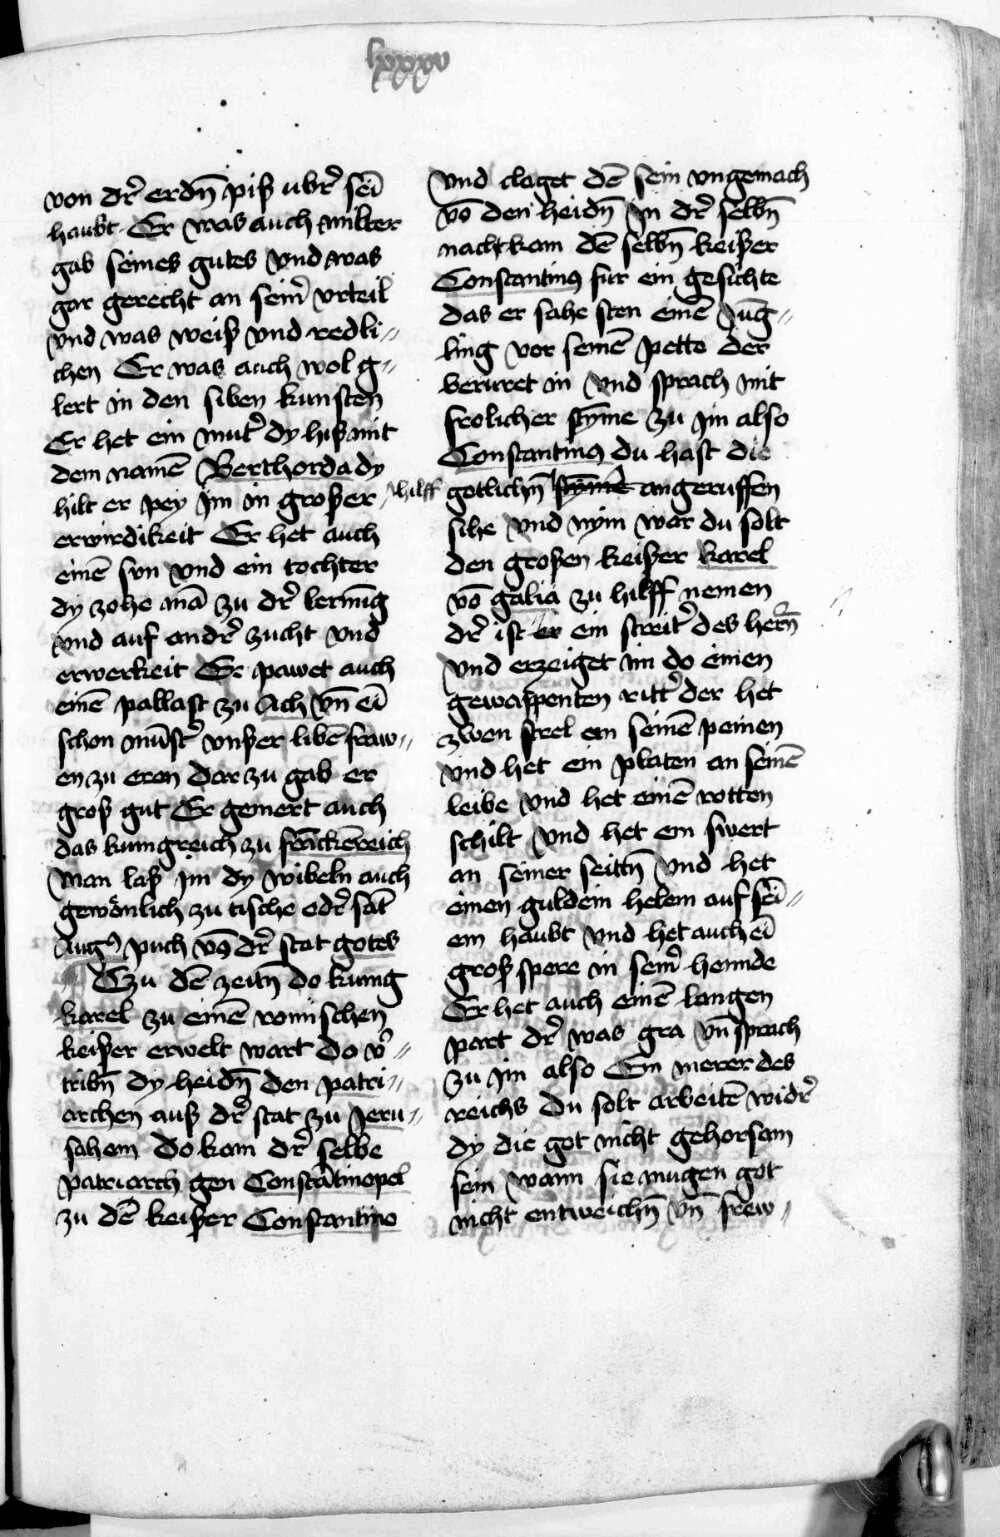 lxxxv
von dr̄ erdn̄ piß ubr̄ sēi
haubt · Er was auch milter
gab seines gutes vnd was
gar gerecht an seim̄ vrteil
vnd was weiß vnd redli〃
chen Er was auch wol g〃
lert in den siben kunsten
Er het ein mut̄ dy hiß mit
dem namē Berthorda dy
hilt er pey im in großer
erwirdikeit Er het auch
einē sun vnd ein tochter
dy zohe mā zu dr̄ lernūg
vnd auf andr̄ zucht vnd
erwerkeit Er pawet auch
einē pallast zu Ach vn̄ eī
schon mūst̄ vnßer libē fraw〃
en zu eren dar zu gab er
groß gut Er gemert auch
das kunigreich zu frāckēreich
Man laß im dy wibeln auch
gewönlich zu tische odr̄ sāt
Augꝰ puch vō dr̄ stat gotes
Czu dē zeitn̄ do kunig
karel zu einē romischen
keißer erwelt wart do v̄〃
tribn̄ dy heidn̄ den patri〃
archen auß dr̄ stat zu Jeru〃
sahem Do kam dr̄ selbe
patriarch gen Constātinopel
zu dē keißer Constantino
vnd claget dē sein vngemach
vō den heidn̄ In dr̄ selbn̄
nacht kam dē selbn̄ keißer
Constantinꝰ fur ein gesichte
das er sahe sten einē Jūg〃
ling vor seinē pette der
beruret in vnd sprach mit
frolicher stȳme zu im also
Constantinꝰ du hast die
gotlichn̄ hilff stȳme angeruffen
sihe vnd nym war du solt
den großen keißer karel
vō galia zu hilff nemen
dr̄ ist er ein streit̄ des herr̄n
vnd erzeiget im do einen
gewappenten ritt̄ der het
zwen strel en seinē peinen
vnd het ein platen an seinē
leibe vnd het einē rotten
schilt vnd het ein swert
an seiner seittn̄ vnd het
einen guldein helem auf sēi〃
em haubt vnd het auch eī
groß spere in seim̄ hennde
Er het auch einē langen
part dr̄ was gra vn̄ sprach
zu im also Ein merer des
reichs du solt arbeitē widr̄
dy die got nicht gehorsam
sein wann sie mugen got
nicht entweichn̄ vn̄ frew〃